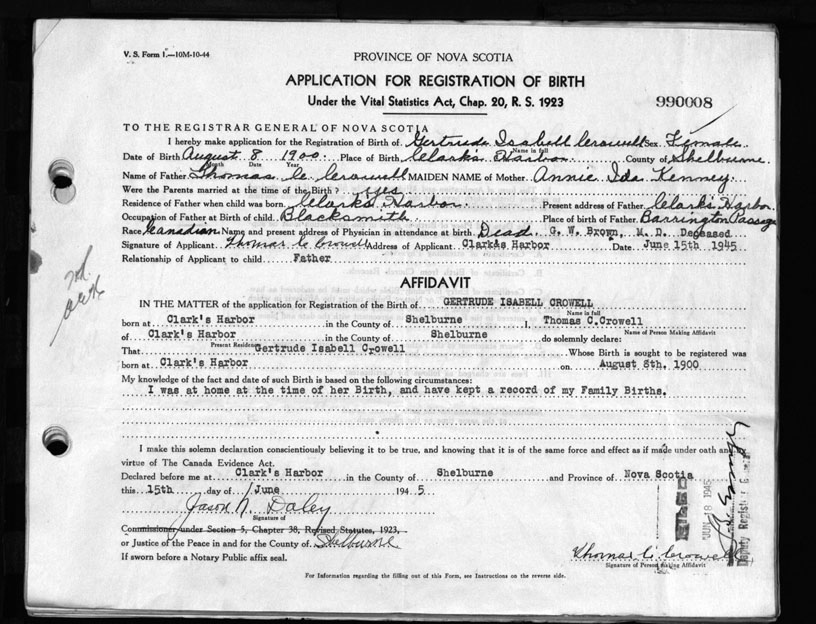 V. S. Form 1.—10M-10-44
PROVINCE OF NOVA SCOTIA
APPLICATION FOR REGISTRATION OF BIRTH
Under the Vital Statistics Act, Chap. 20, R. S. 1923
990008
TO THE REGISTRAR GENERAL OF NOVA SCOTIA
I hereby make application for the Registration of Birth of Gertrude Isabell Crowell Sex Female
Name in full
Date of Birth August 8 1900. Place of Birth Clark's Harbor. County of Shelburne.
Month Date Year
Name of Father Thomas C. Crowell MAIDEN NAME of Mother Annie Ida Kenney
Were the Parents married at the time of the Birth? yes
Residence of Father when child was born Clark's Harbor. Present address of Father Clark's Harbor.
Occupation of Father at Birth of child. Blacksmith Place of birth of Father Barrington Passage
Race Canadian Name and present address of Physician in attendance at birth Dead. G. W. Brown, M. D. Deceased
Signature of Applicant Thomas C Crowell Address of Applicant Clark's Harbor Date June 15th 1945
Relationship of Applicant to child Father
AFFIDAVIT
IN THE MATTER of the application for Registration of the Birth of GERTRUDE ISABELL CROWELL
Name in full
born at Clark's Harbor in the County of Shelburne I, Thomas C.Crowell
Name of Person Making Affidavit
of Clark's Harbor in the County of Shelburne do solemnly declare:
Present Residence
That Gertrude Isabell Crowell Whose Birth is sought to be registered was
born at Clark's Harbor on August 8th. 1900
My knowledge of the fact and date of such Birth is based on the following circumstances:
I was at home at the time of her Birth, and have kept a record of my Family Births.
I make this solemn declaration conscientiously believing it to be true, and knowing that it is of the same force and effect as if made under oath and
virtue of The Canada Evidence Act.
Declared before me at Clark's Harbor in the County of Shelburne and Province of Nova Scotia
this 15th day of June 1945
Jason N. Daley
Signature of
Commissioner under Section 5, Chapter 38, Revised Statutes, 1923,
or Justice of the Peace in and for the County of Shelburne
If sworn before a Notary Public affix seal.
Thomas C. Crowell
Signature of Person Making Affidavit
JUN 18 1945
Deputy Registrar G
For Information regarding the filling out of this Form, see Instructions on the reverse side.